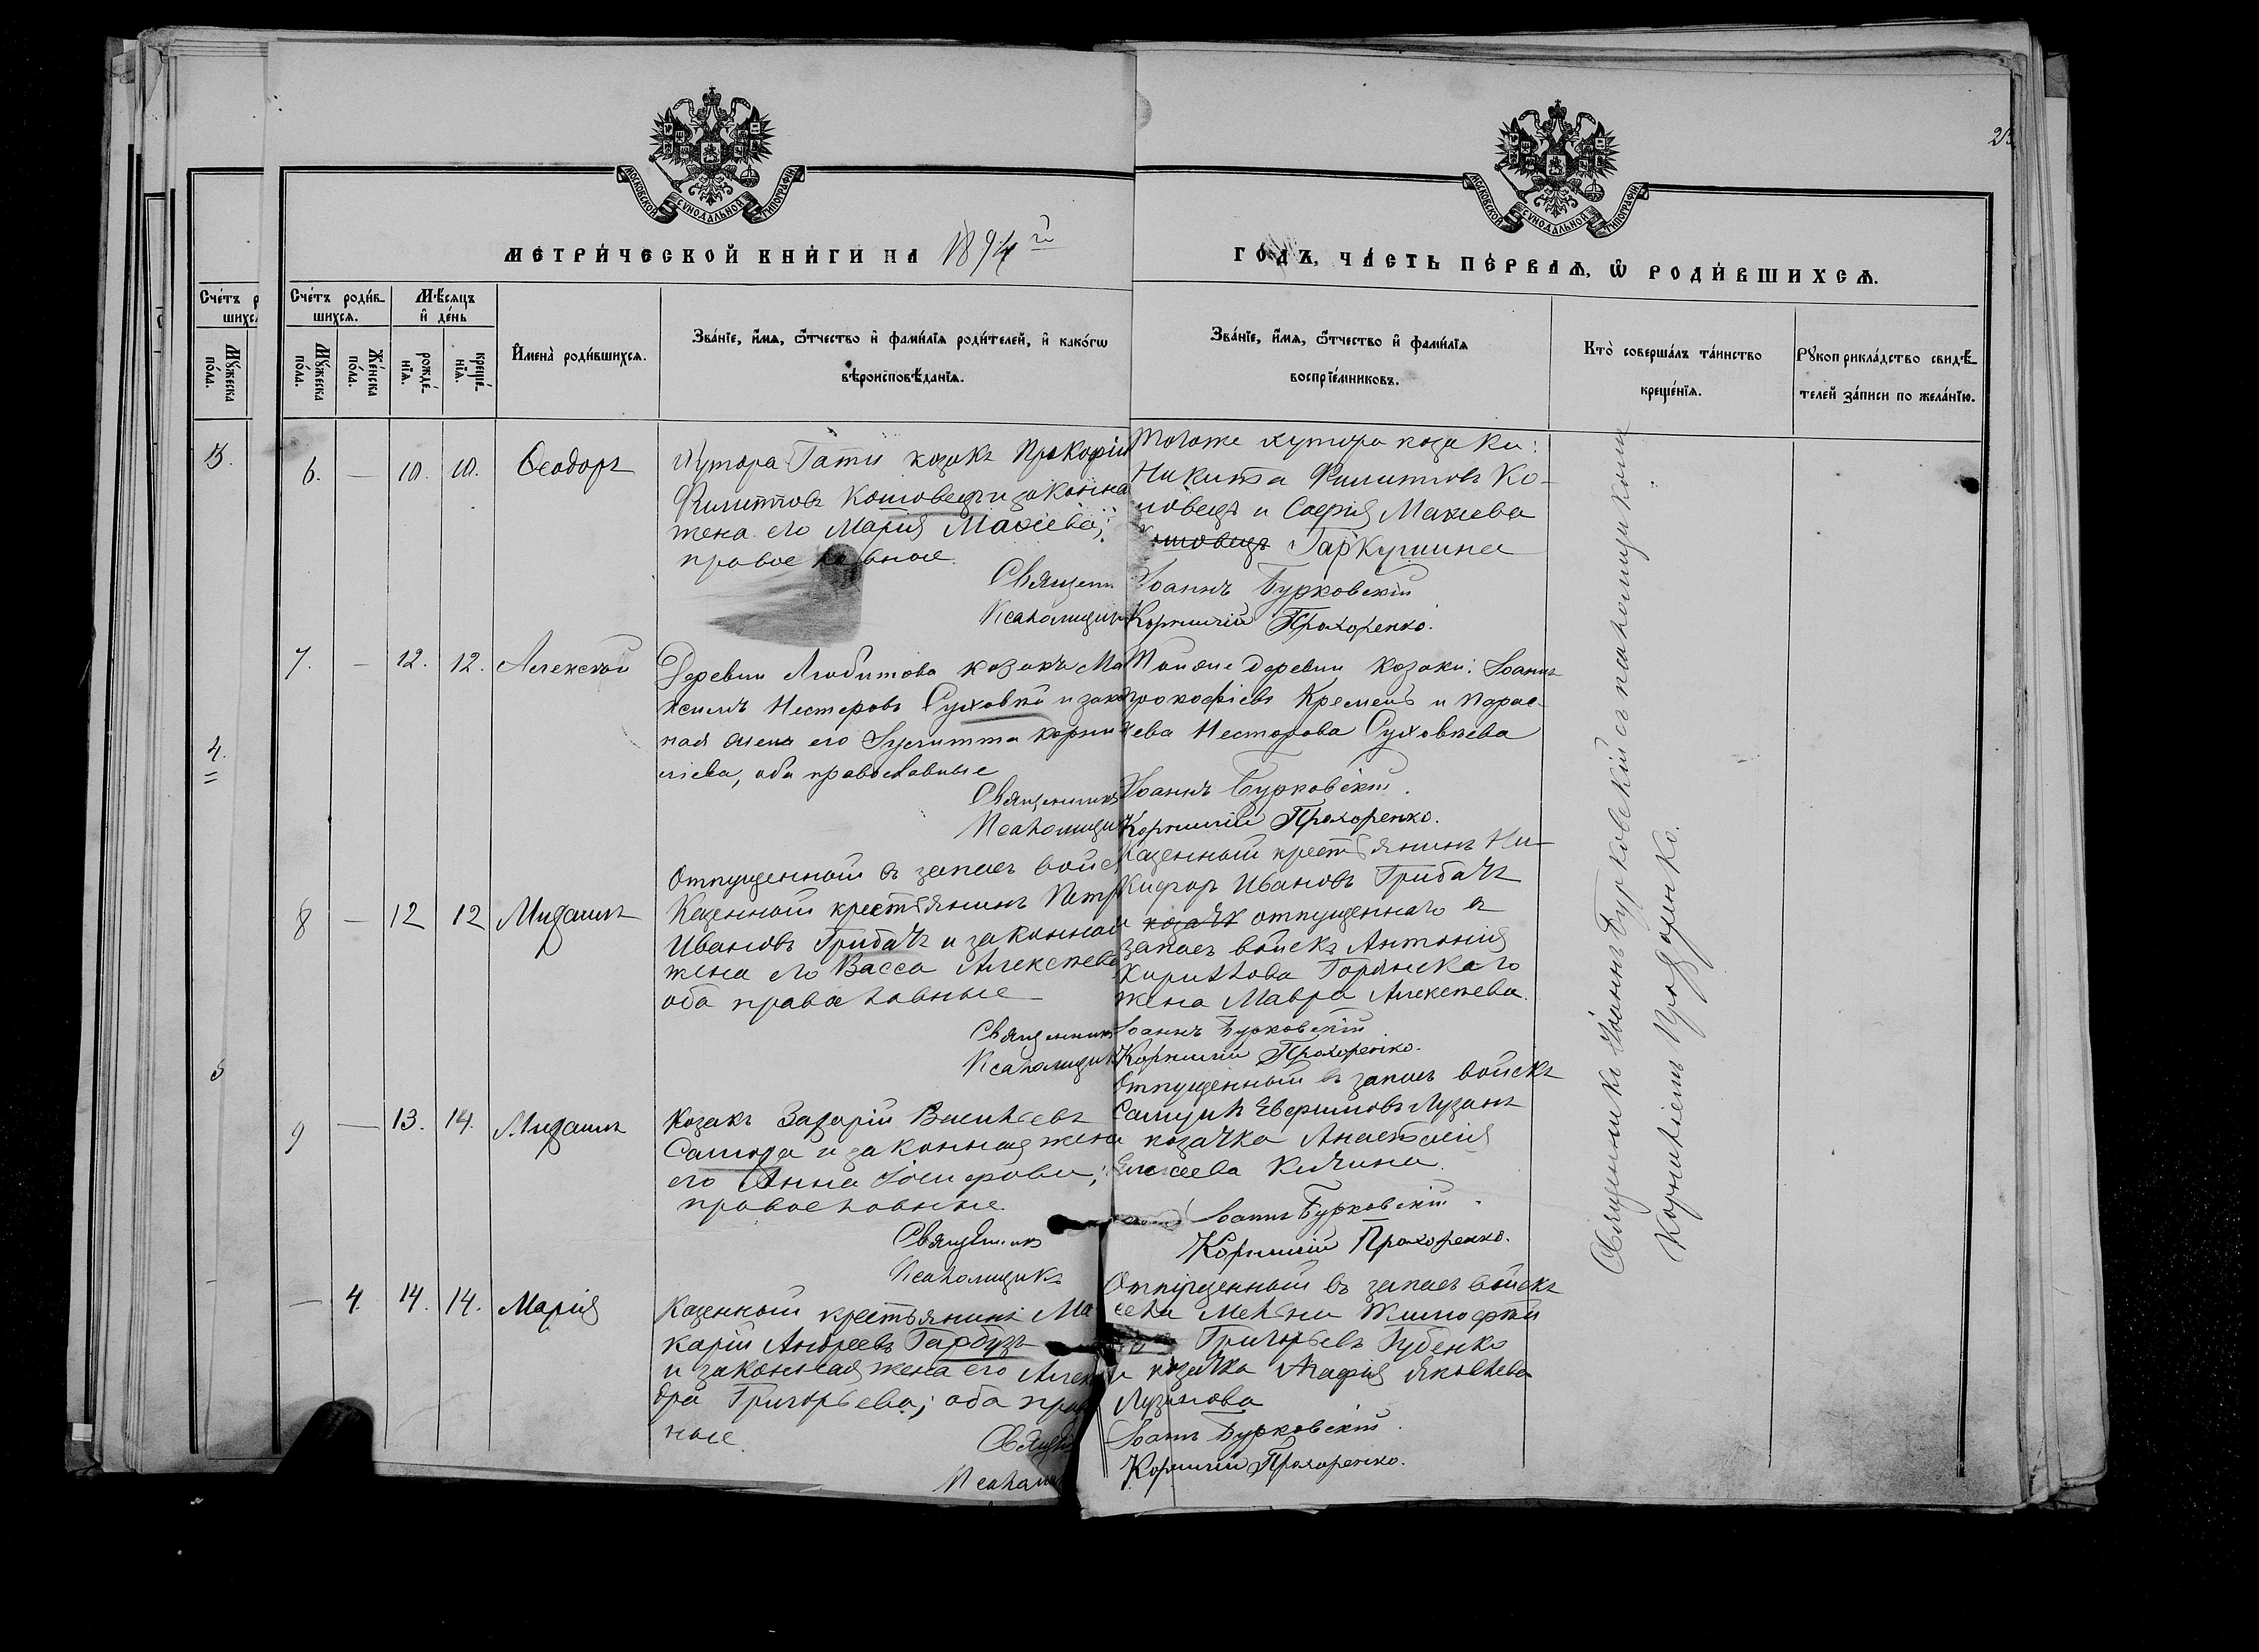 МОСКОВСКОЙ СУНОДАЛЬНОЙ ТИПОГРАФІИ
МОСКОВСКОЙ СУНОДАЛЬНОЙ ТИПОГРАФІИ
МЕТРИ́ЧЕСКОЙ КНИ́ГИ НА 1894 й
ГО́ДЪ, ЧА́СТЬ ПЕ́РВАѦ, Ѽ РОДИ́ВШИХСѦ.
Сче́тъ роди́вшихсѧ.
Мѣ́сяцъ и де́нь
Мꙋ́жеска по́ла.
Же́нска по́ла.
рожде́нїѧ.
креще́нїѧ.
Имена̀ роди́вшихсѧ.
Зва́нїе, и́мѧ, ѻ́тчество и фами́лїѧ роди́телей, и како́гѡ
вѣроисповѣ́данїѧ.
Зва́нїе, и́мѧ, ѻ́тчество и фами́лїѧ
воспрїе́мниковъ.
Кто̀ соверша́лъ та́инство
креще́нїѧ.
Рꙋкоприкла́дство свидѣ́-
телей за́писи по жела́нїю.
6. — 10. 10. Ѳеодоръ
Хутора Гати козакъ Прокофій
Филипповъ Коновецъ и законна
жена его Марія Макіева;
православные.
Священ
Псаломщик
Тогоже хутора козаки:
Никита Филипповъ Ко-
новецъ и Софія Макиева
Гаркушина
Іоаннъ Бурковскій
Корнилій Прохоренко.
7. — 12. 12. Алексѣй
Деревни Любитова козакъ Ма
ксимъ Нестеровъ Суховѣй и закон
ная жена его Іустина Корни
ліева, оба православные
Священникъ
Псаломщик
Тойже деревни козаки: Іоаннъ
Прокофіевъ Кремень и Парас-
кева Несторова Суховѣева
Іоаннъ Бурковскій.
Корнилій Прохоренко.
8 — 12 12 Михаилъ
Отпущенный въ запасъ войс
Казенный крестьянинъ Петр
Ивановъ Грибачъ и законная
жена его Васса Алексѣева
оба православные
Священникъ
Псаломщикъ
Казенный крестьянинъ Ни-
кифоръ Ивановъ Грибачъ
и козачк отпущеннаго въ
запасъ войскъ Антонія
Кириллова Горянскаго
жена Мавра Алексѣева.
Іоаннъ Бурковскій
Корнилій Прохоренко.
9 — 13. 14. Михаилъ
Козакъ Захарій Васильевъ
Самора и законная жена
его Анна Іосифова;
православные.
Священникъ
Псаломщикъ
Отпущенный въ запасъ войскъ
Самуилъ Евфимовъ Лузанъ
козачка Анастасія
Елисеева Кичина.
Іоаннъ Бурковскій.
Корнилій Прохоренко.
— 4. 14. 14. Марія
Казенный крестьянинъ Ма
карій Андреевъ Гарбузъ
и законная жена его Алек
дра Григорьева; оба прав
ные.
Священ
Псалом
Отпущенный въ запасъ войскъ
села Мельни Тимофѣй
Григорьевъ Губенко
и козачка Агафія Яковлева
Лузанова
Іоаннъ Бурковскій.
Корнилій Прохоренко.
Священникъ Іоаннъ Бурковскій съ псаломщикомъ
Корниліемъ Прохоренко.